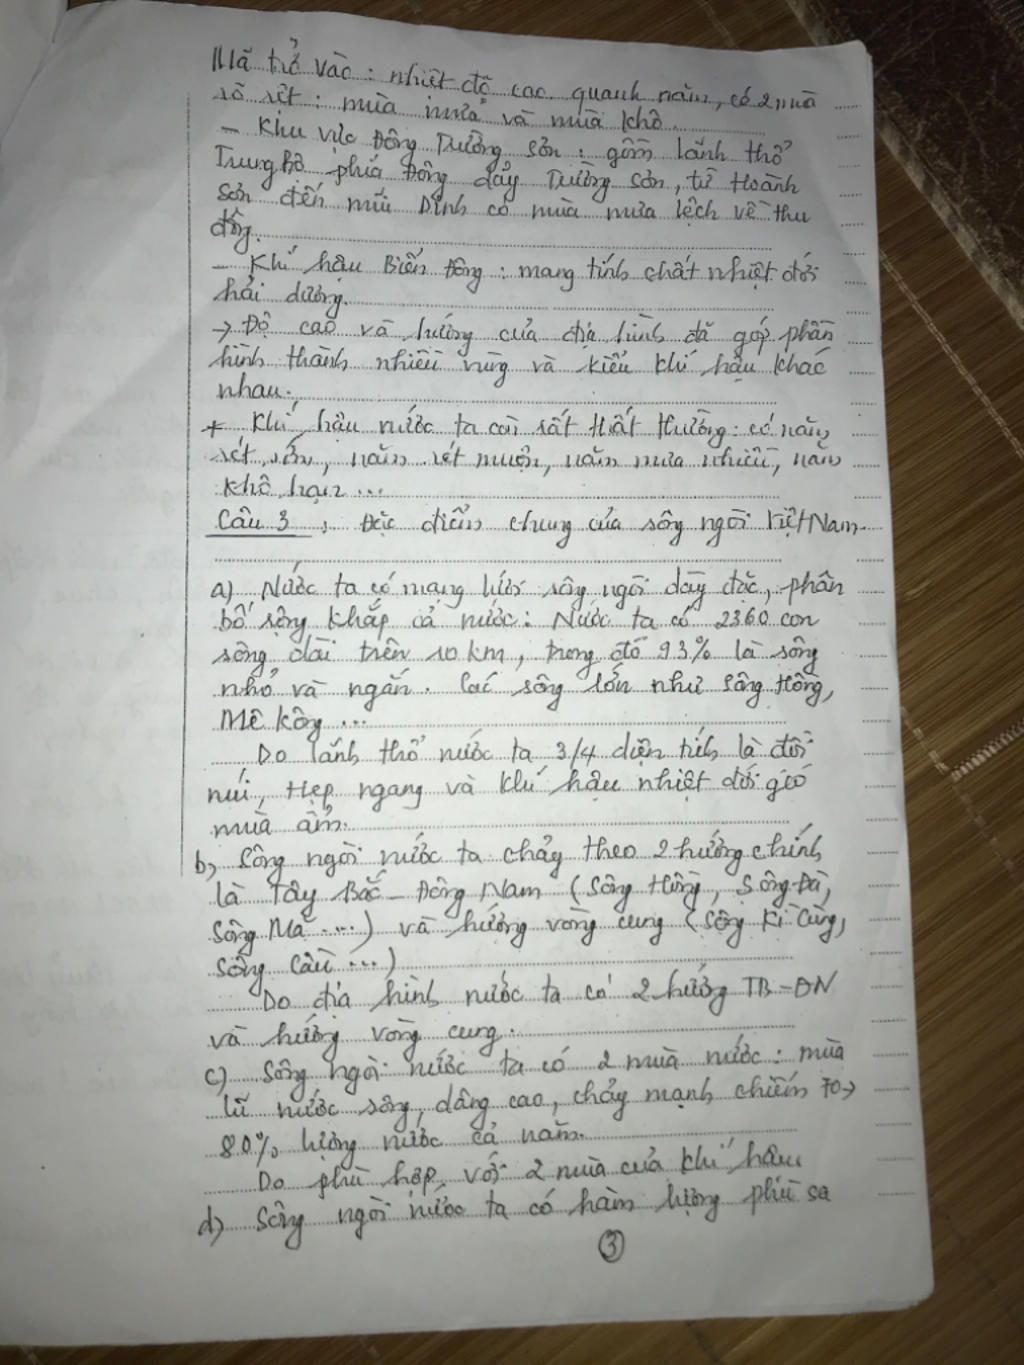 Mã trở vào: nhiệt độ cao quanh năm, có 2 mùa
rõ rệt: mùa mưa và mùa khô.
- Khu vực Đông Trường Sơn: gồm lãnh thổ
Trung Bộ phía Đông dãy Trường Sơn, từ Hoành
Sơn đến mũi Dinh có mùa mưa lệch về thu
đông.
- Khí hậu Biển Đông: mang tính chất nhiệt đới
hải dương.
→ Độ cao và hướng của địa hình đã góp phần
hình thành nhiều vùng và kiểu khí hậu khác
nhau.
+ Khí hậu nước ta còn rất thất thường: có năm
rét sớm, năm rét muộn, năm mưa nhiều, năm
khô hạn...
Câu 3: Đặc điểm chung của sông ngòi Việt Nam.
a) Nước ta có mạng lưới sông ngòi dày đặc, phân
bố rộng khắp cả nước: Nước ta có 2360 con
sông dài trên 10 km, trong đó 93% là sông
nhỏ và ngắn. Các sông lớn như sông Hồng,
Mê Kông...
Do lãnh thổ nước ta 3/4 diện tích là đồi
núi, Hẹp ngang và khí hậu nhiệt đới gió
mùa ẩm.
b, Sông ngòi nước ta chảy theo 2 hướng chính
là Tây Bắc - Đông Nam (Sông Hồng, Sông Đà,
Sông Mã ....) và hướng vòng cung (Sông Kì Cùng,
Sông Cầu ...)
Do địa hình nước ta có 2 hướng TB - ĐN
và hướng vòng cung.
c) Sông ngòi nước ta có 2 mùa nước: mùa
lũ nước sông dâng cao, chảy mạnh chiếm 70→
80% lượng nước cả năm.
Do phù hợp với 2 mùa của khí hậu
d) Sông ngòi nước ta có hàm lượng phù sa
3